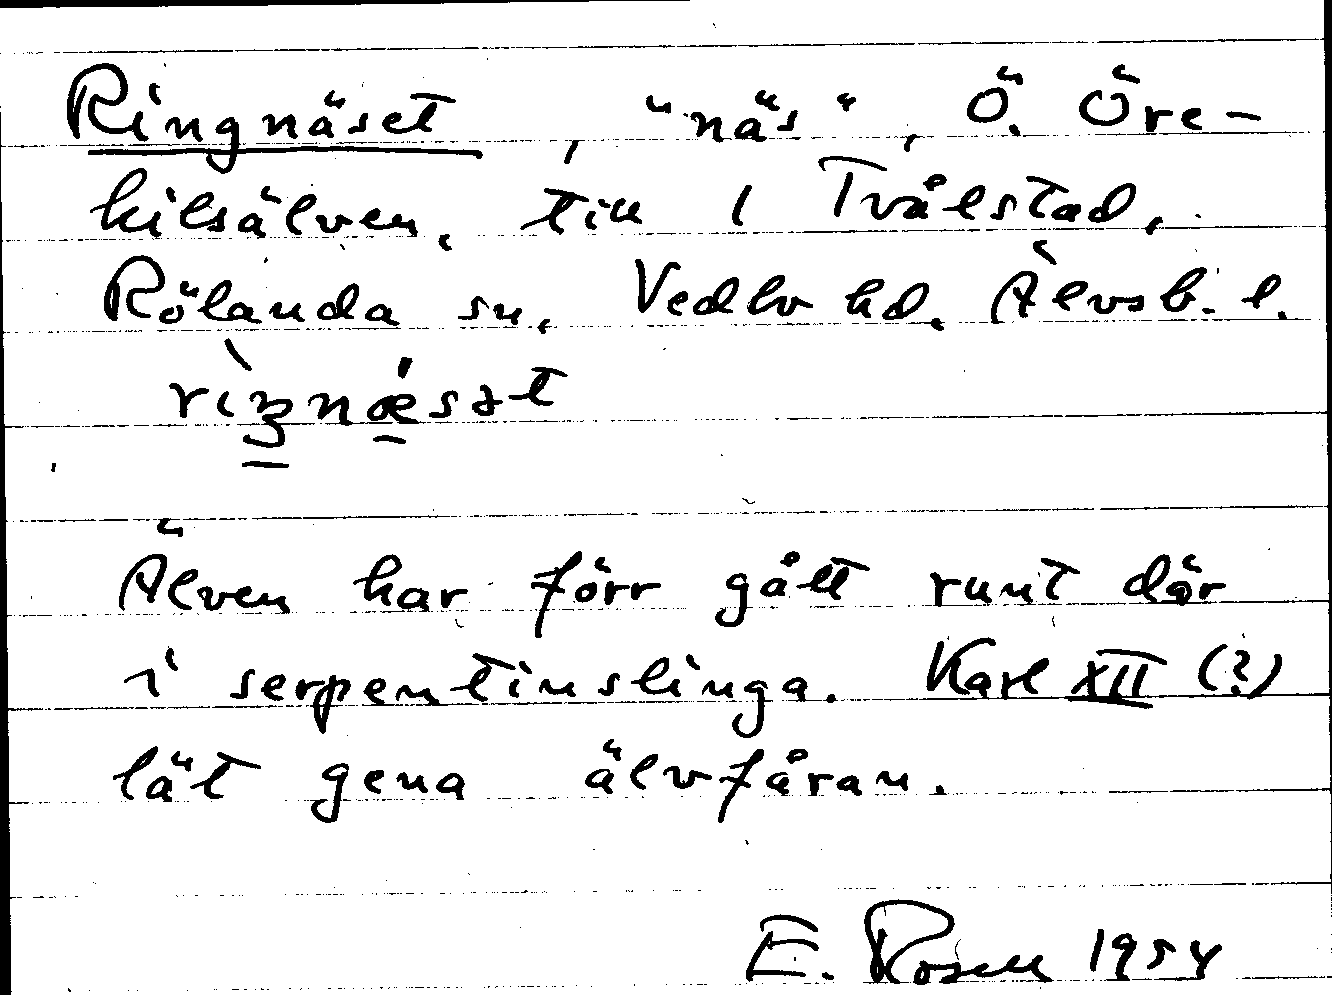 Ringnäset, "näs", Ö. Öre-
kilsälven, till 1 Tvålstad,
Rölanda sn, Vedbo hd. Älvsb. l.
Älven har förr gått runt där
i serpentinslinga. Karl XII (?)
lät gena älvfåran.
E. Rosell 1954